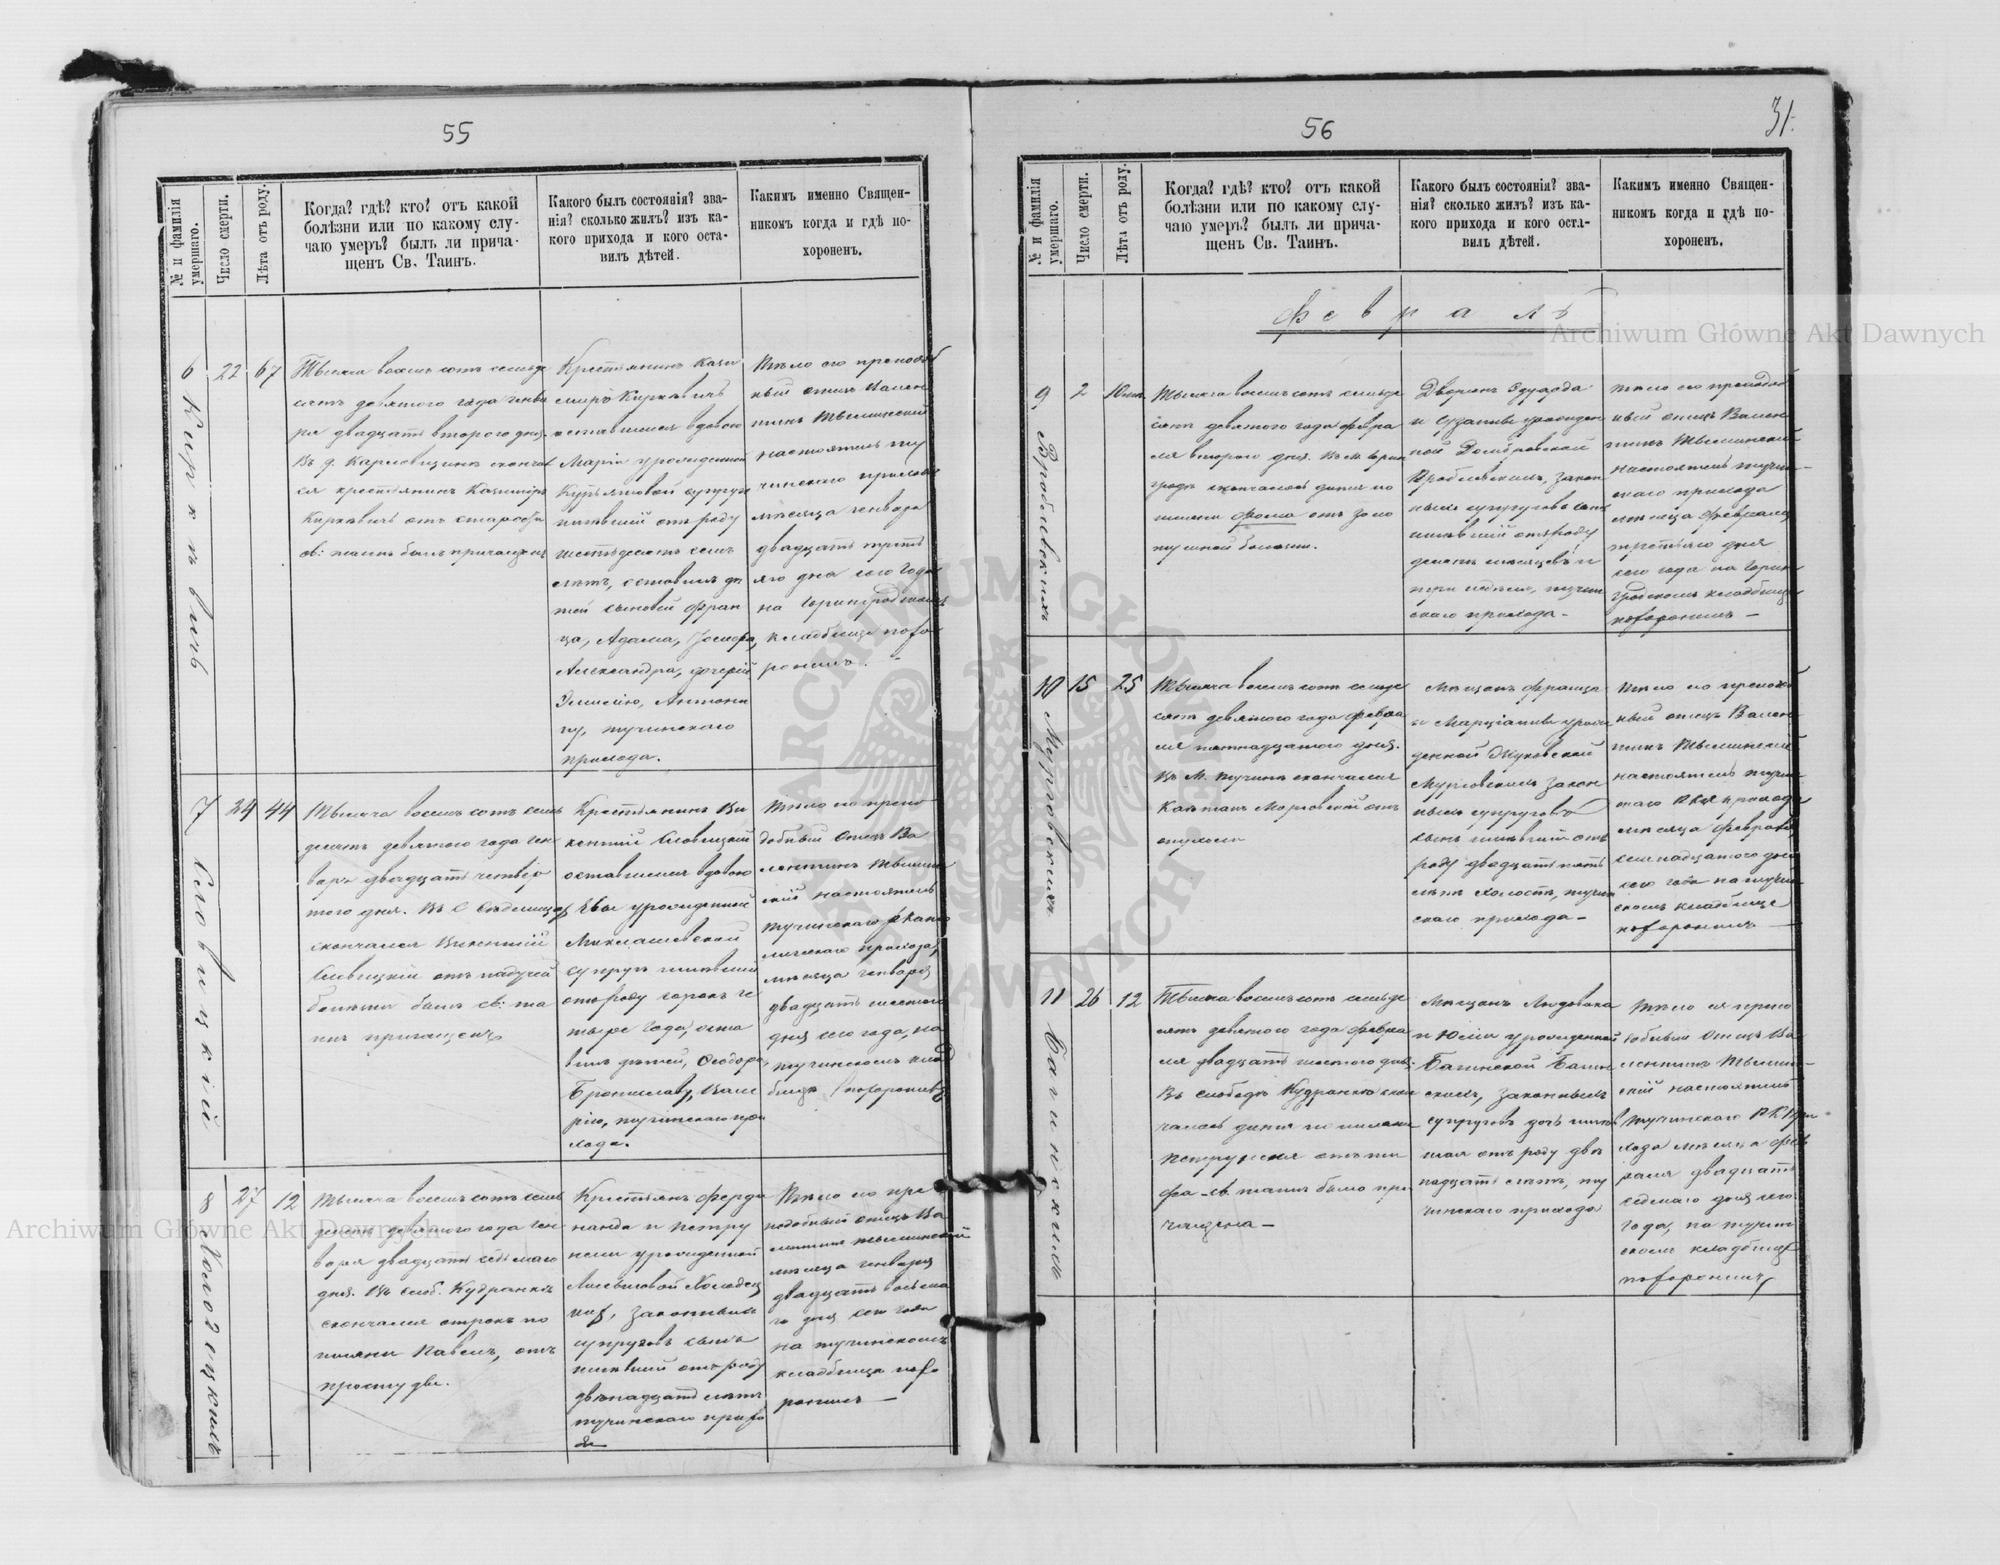 55
№ и фамилія умершаго.
Число смерти.
Лѣта отъ роду.
Когда? гдѣ? кто? отъ какой
болѣзни или по какому слу-
чаю умеръ? былъ ли прича-
щенъ Св. Таинъ.
Какого былъ состоянія? зва-
нія? сколько жилъ? изъ ка-
кого прихода и кого оста-
вилъ дѣтей.
Какимъ именно Священ-
никомъ когда и гдѣ по-
хороненъ.
6
Киркевичъ
22
67
Тысяча восемь сотъ семьде
сятъ девятого года генва
ря двадцать второго дня.
скончал
ся крестьянинъ Казимиръ
Киркевичъ отъ старости
св: таинъ былъ причащенъ
Крестьянинъ Кази
миръ Киркевичъ
оставшаяся вдовою
Марія урожденной
супругъ
имѣвшій отъ роду
шестьдесятъ семь
лѣтъ, оставилъ дѣ
тей сыновей Фран
ца, Адама, Іосифа,
Александра, дочерей
Эмилію, Антони
ну, тучинскаго
прихода.
Тѣло его преподоб
ный отецъ Вален
тинъ
настоятель ту
чинскаго прихода
мѣсяца генваря
двадцать треть
яго дня сего года
на Горинградском
кладбище похо
ронилъ.
7
Словицкій
24
44
Тысяча восемь сотъ семь
десятъ девятого года ген
варя двадцать четвер
того дня. Въ с.
скончался Викентій
Словицкій отъ падучей
болѣзни былъ св: та
инъ причащенъ
Крестьянинъ Ви
кентій Словицкій
оставшаяся вдовою
Ева урожденной
Миклашевской
супругъ имѣвшій
отъ роду сорокъ че
тыре года, оста
вилъ дѣтей, Ѳеодора,
Брониславу, Вале
рію, тучинскаго при
хода.
Тѣло его препо
добный Отецъ Ва
лентинъ
скій настоятель
тучинскаго р като
лическаго прихода,
мѣсяца генваря
двадцать шестого
дня сего года, на
тучинскомъ клад
бищѣ похоронилъ
8
Холодецкимъ
27
12
Тысяча восемь сотъ семь
десятъ девятого года ген
варя двадцать седьмаго
дня. Въ слоб. Кудранка
скончался отрокъ по
имени Павелъ, отъ
простуды.
Крестьянъ Ферди
нанда и Петру
нели урожденной
Холодец
кихъ, законныхъ
супруговъ сынъ
имѣвшій отъ роду
двѣнадцать лѣтъ
тучинскаго прихо
да
Тѣло его пре
подобный отецъ Ва
лентинъ
мѣсяца генваря
двадцать восьма
го дня сего года
на тучинскомъ
кладбище похо
ронилъ —
56
31.
№ и фамилія умершаго.
Число смерти.
Лѣта отъ роду.
Когда? гдѣ? кто? отъ какой
болѣзни или по какому слу-
чаю умеръ? былъ ли прича-
щенъ Св. Таинъ.
Какого былъ состоянія? зва-
нія? сколько жилъ? изъ ка-
кого прихода и кого оста-
вилъ дѣтей.
Какимъ именно Священ-
никомъ когда и гдѣ по-
хороненъ.
Февраль
9
Вроблевскихъ
2
10 м.
Тысяча восемь сотъ семьде
сятъ девятого года февра
ля второго дня. Въ м. Горин
градѣ скончалось дитя по
имени Фома отъ золо
тушной болѣзни.
Дворянъ Эдуарда
и Сузанны урожден
ной Домбровской
Вроблевскихъ, закон
ныхъ супруговъ сынъ
имѣвшій отъ роду
десять мѣсяцевъ и
три недѣли, тучин
скаго прихода —
Тѣло его преподоб
ный отецъ Вален
тинъ
настоятель тучин—
скаго прихода
мѣсяца февраля
третьяго дня
сего года на Горин
градскомъ кладбище
похоронилъ —
10
Мурговскихъ
15
25
Тысяча восемь сотъ семьде
сятъ девятого года февра
ля пятнадцатого дня.
Въ М. Тучинѣ скончался
отъ
опухоли
Мѣщанъ Франца
и Марціанны урож
денной Жуковской
Мурговскихъ закон
ныхъ супруговъ
сынъ имѣвшій отъ
роду двадцать пять
лѣтъ холостъ, тучин
скаго прихода —
Тѣло его преподоб
ный отецъ Вален
тинъ
настоятель тучин
скаго Р К прихода
мѣсяца февраля
семнадцатого дня
сего года на тучин
скомъ кладбище
похоронилъ —
11
Багинскимъ
26
12
Тысяча восемь сотъ семьде
сятъ девятого года февра
ля двадцать шестого дня.
Въ слободѣ Кудранка скон
чалось дитя по имени
Петрунеля отъ ти
фа — св. таинъ была при
чащена —
Мѣщанъ Людовика
и Юліи урожденной
Багинской Багин
скихъ, законныхъ
супруговъ дочь имѣв
шая отъ роду двѣ
надцать лѣтъ, ту
чинскаго прихода
Тѣло ея препо
добный Отецъ Ва
лентинъ
скій настоятель
тучинскаго Р К При
хода мѣсяца фев
раля двадцать
седьмаго дня сего
года, на тучин
скомъ кладбище
похоронилъ
Archiwum Główne Akt Dawnych
Archiwum Główne Akt Dawnych
ARCHIWUM GŁÓWNE AKT DAWNYCH